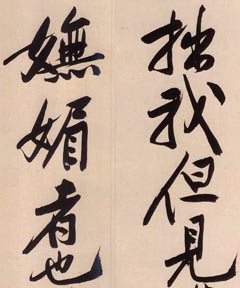 拙我但見
嫵媚者也